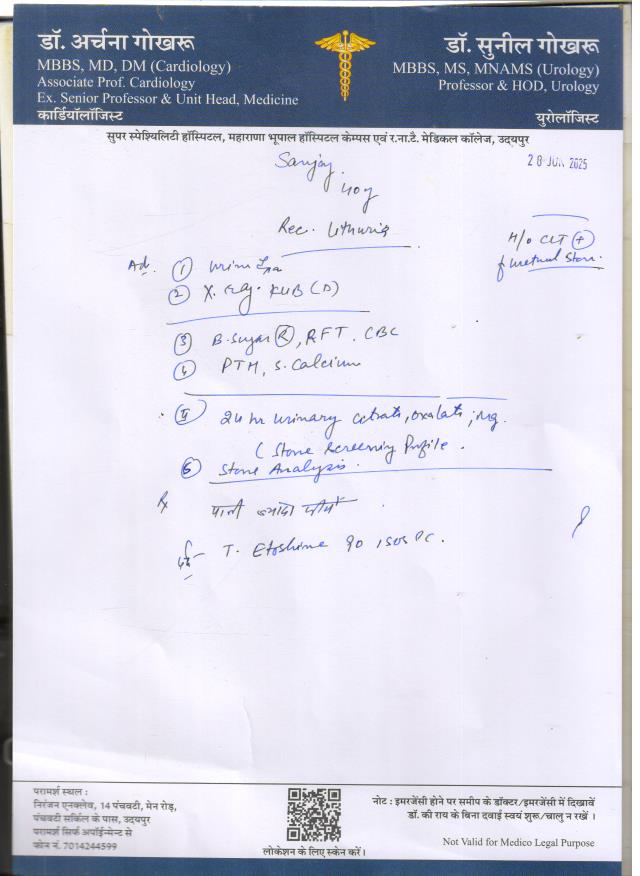 डॉ. अर्चना गोखरू
MBBS, MD, DM (Cardiology)
Associate Prof. Cardiology
Ex. Senior Professor & Unit Head, Medicine
कार्डियॉलॉजिस्ट
डॉ. सुनील गोखरू
MBBS, MS, MNAMS (Urology)
Professor & HOD, Urology
युरोलॉजिस्ट
सुपर स्पेश्यिलिटी हॉस्पिटल, महाराणा भूपाल हॉस्पिटल केम्पस एवं र.ना.टै. मेडिकल कॉलेज, उदयपुर
28 JUN 2025
Sanjay
40y
Rec. Lithuria
H/o CLT (+)
Adv. 1 Urine
2 X. Ray. KUB (D)
3 B. Sugar (R), RFT. CBC
4 PTH, S. Calcium
24 hr urinary citrate, oxalate, mg.
( Stone Screening Profile.
6 Stone Analysis.
Rx पानी ज्यादा पीयें
T. Etoshine 90 1 SOS PC.
परामर्श स्थल :
निरंजन एनक्लेव, 14 पंचवटी, मेन रोड़,
पंचवटी सर्किल के पास, उदयपुर
परामर्श सिर्फ अपॉईन्मेन्ट से
फोन नं. 7014244599
लोकेशन के लिए स्केन करें।
नोट : इमरजेंसी होने पर समीप के डॉक्टर/इमरजेंसी में दिखावें
डॉ. की राय के बिना दवाई स्वयं शुरू/चालु न रखें ।
Not Valid for Medico Legal Purpose